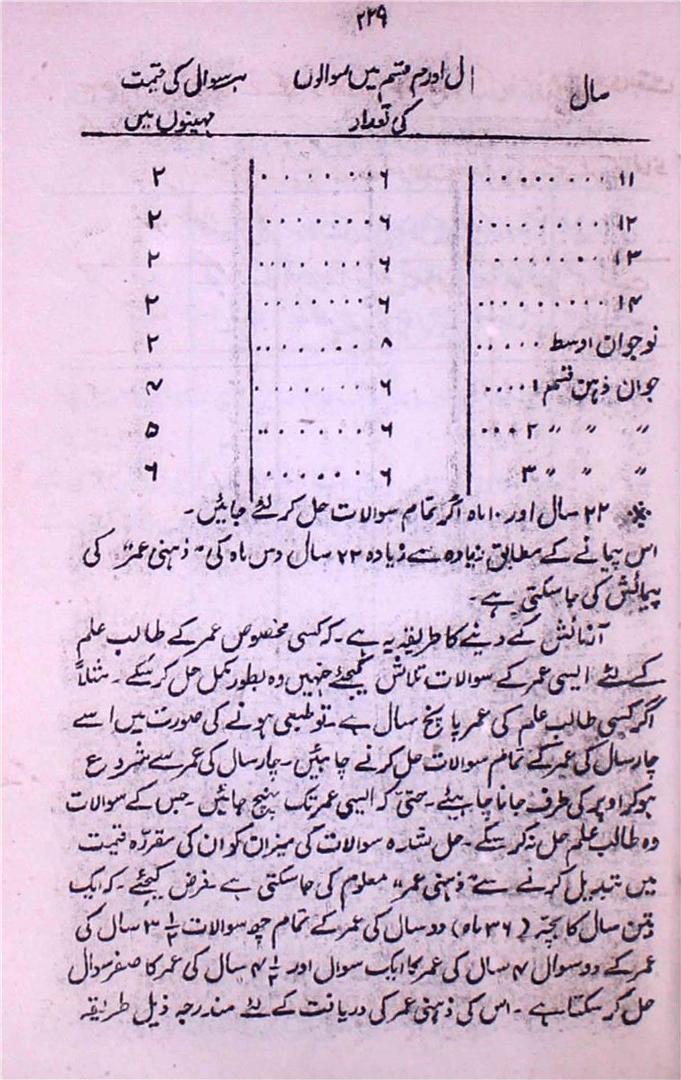 ۲۲۹
سال | ل اور م قسم میں سوالوں | ہر سوال کی قیمت
کی تعداد | مہینوں میں
۱۱ ........ | ۶ ....... | ۲
۱۲ ........ | ۶ ....... | ۲
۱۳ ........ | ۶ ....... | ۲
۱۴ ........ | ۶ ....... | ۲
نوجوان اوسط ..... | ۸ ....... | ۲
جوان ذہن قسم ۱ .... | ۶ ....... | ۴
〃 〃 〃 ۲ .... | ۶ ....... | ۵
〃 〃 〃 ۳ | ۶ ...... | ۶
* ۲۲ سال اور ۱۰ ماہ اگر تمام سوالات حل کر لئے جائیں۔
اس پیمانے کے مطابق زیادہ سے زیادہ ۲۲ سال دس ماہ کی "ذہنی عمر" کی
پیمائش کی جا سکتی ہے۔
آزمائش کے دینے کا طریقہ یہ ہے۔ کہ کسی مخصوص عمر کے طالب علم
کے لئے ایسی عمر کے سوالات تلاش کیجئے جنہیں وہ بطور مکمل حل کر سکے۔ مثلاً
اگر کسی طالب علم کی عمر پانچ سال ہے۔ تو طبعی ہونے کی صورت میں اسے
چار سال کی عمر کے تمام سوالات حل کرنے چاہئیں۔ چار سال کی عمر سے شروع
ہو کر اوپر کی طرف جانا چاہیئے۔ حتیٰ کہ ایسی عمر تک پہنچ جائیں۔ جس کے سوالات
وہ طالب علم حل نہ کر سکے۔ حل شدہ سوالات کی میزان کو ان کی مقررہ قیمت
میں تبدیل کرنے سے "ذہنی عمر" معلوم کی جا سکتی ہے۔ فرض کیجئے۔ کہ ایک
تین سال کا بچہ (۳۶ ماہ) دو سال کی عمر کے تمام چھ سوالات ۳½ سال کی
عمر کے دو سوال ۴ سال کی عمر کا ایک سوال اور ۴½ سال کی عمر کا صفر سوال
حل کر سکتا ہے۔ اس کی ذہنی عمر کی دریافت کے لئے مندرجہ ذیل طریقہ